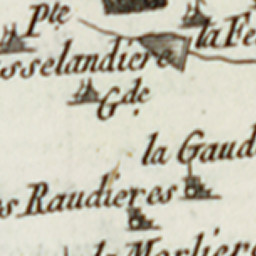 Pte
la Fe
sselandiere
Gde
la Gaud
s Raudieres
la Morliere